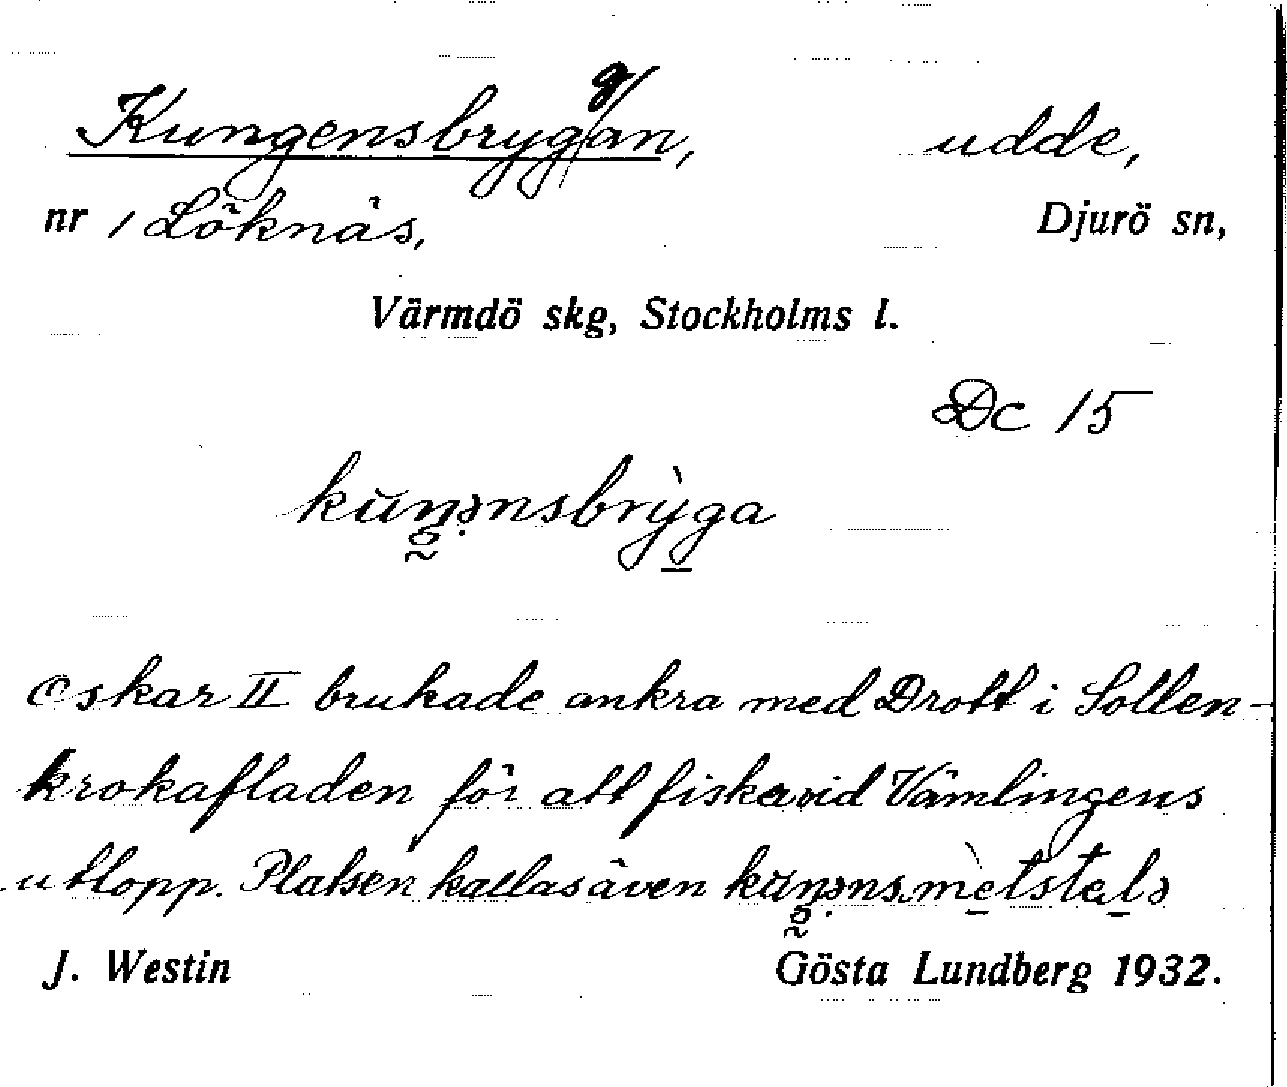 Kungensbryggan, udde,
nr 1 Löknäs, Djurö sn,
Värmdö skg, Stockholms l.
Dc 15
kŭŋənsbrỳga
Oskar II brukade ankra med Drott i Sollen-
krokafladen för att fiska vid Vämlingens
utlopp. Platsen kallas även kŭŋənsmètstalə
J. Westin Gösta Lundberg 1932.